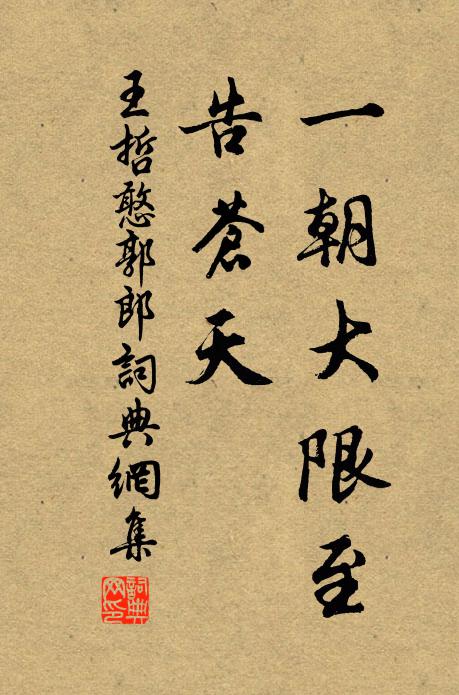 一朝大限至
告蒼天
王哲憨郭郎詞典網集
詞典网印